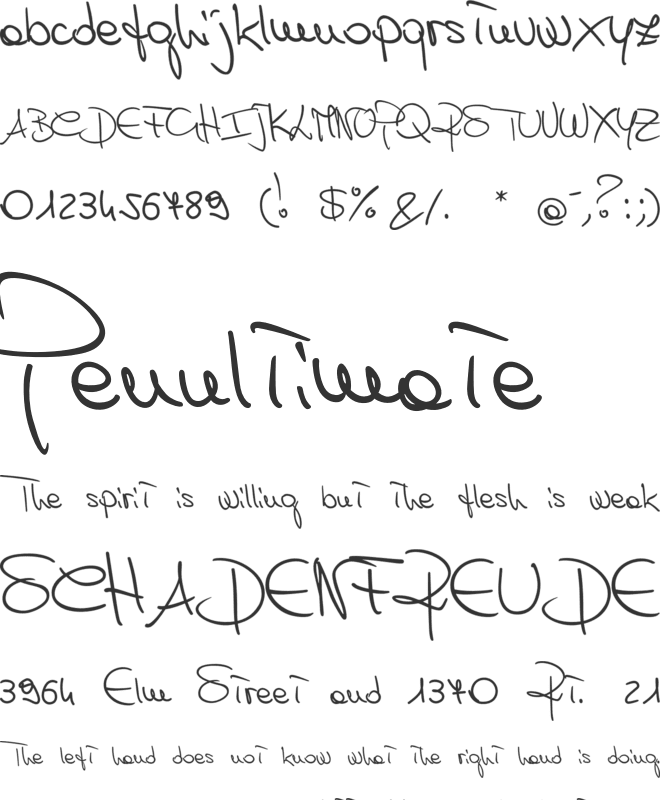 abcdefghijklmnopqrstuvwxyz
ABCDEFGHIJKLMNOPQRSTUVWXYZ
0123456789 (! $%&/. * @¯,?:;)
Penultimate
The spirit is willing but the flesh is weak
SCHADENFREUDE
3964 Elm Street and 1370 Rt. 21
The left hand does not know what the right hand is doing.